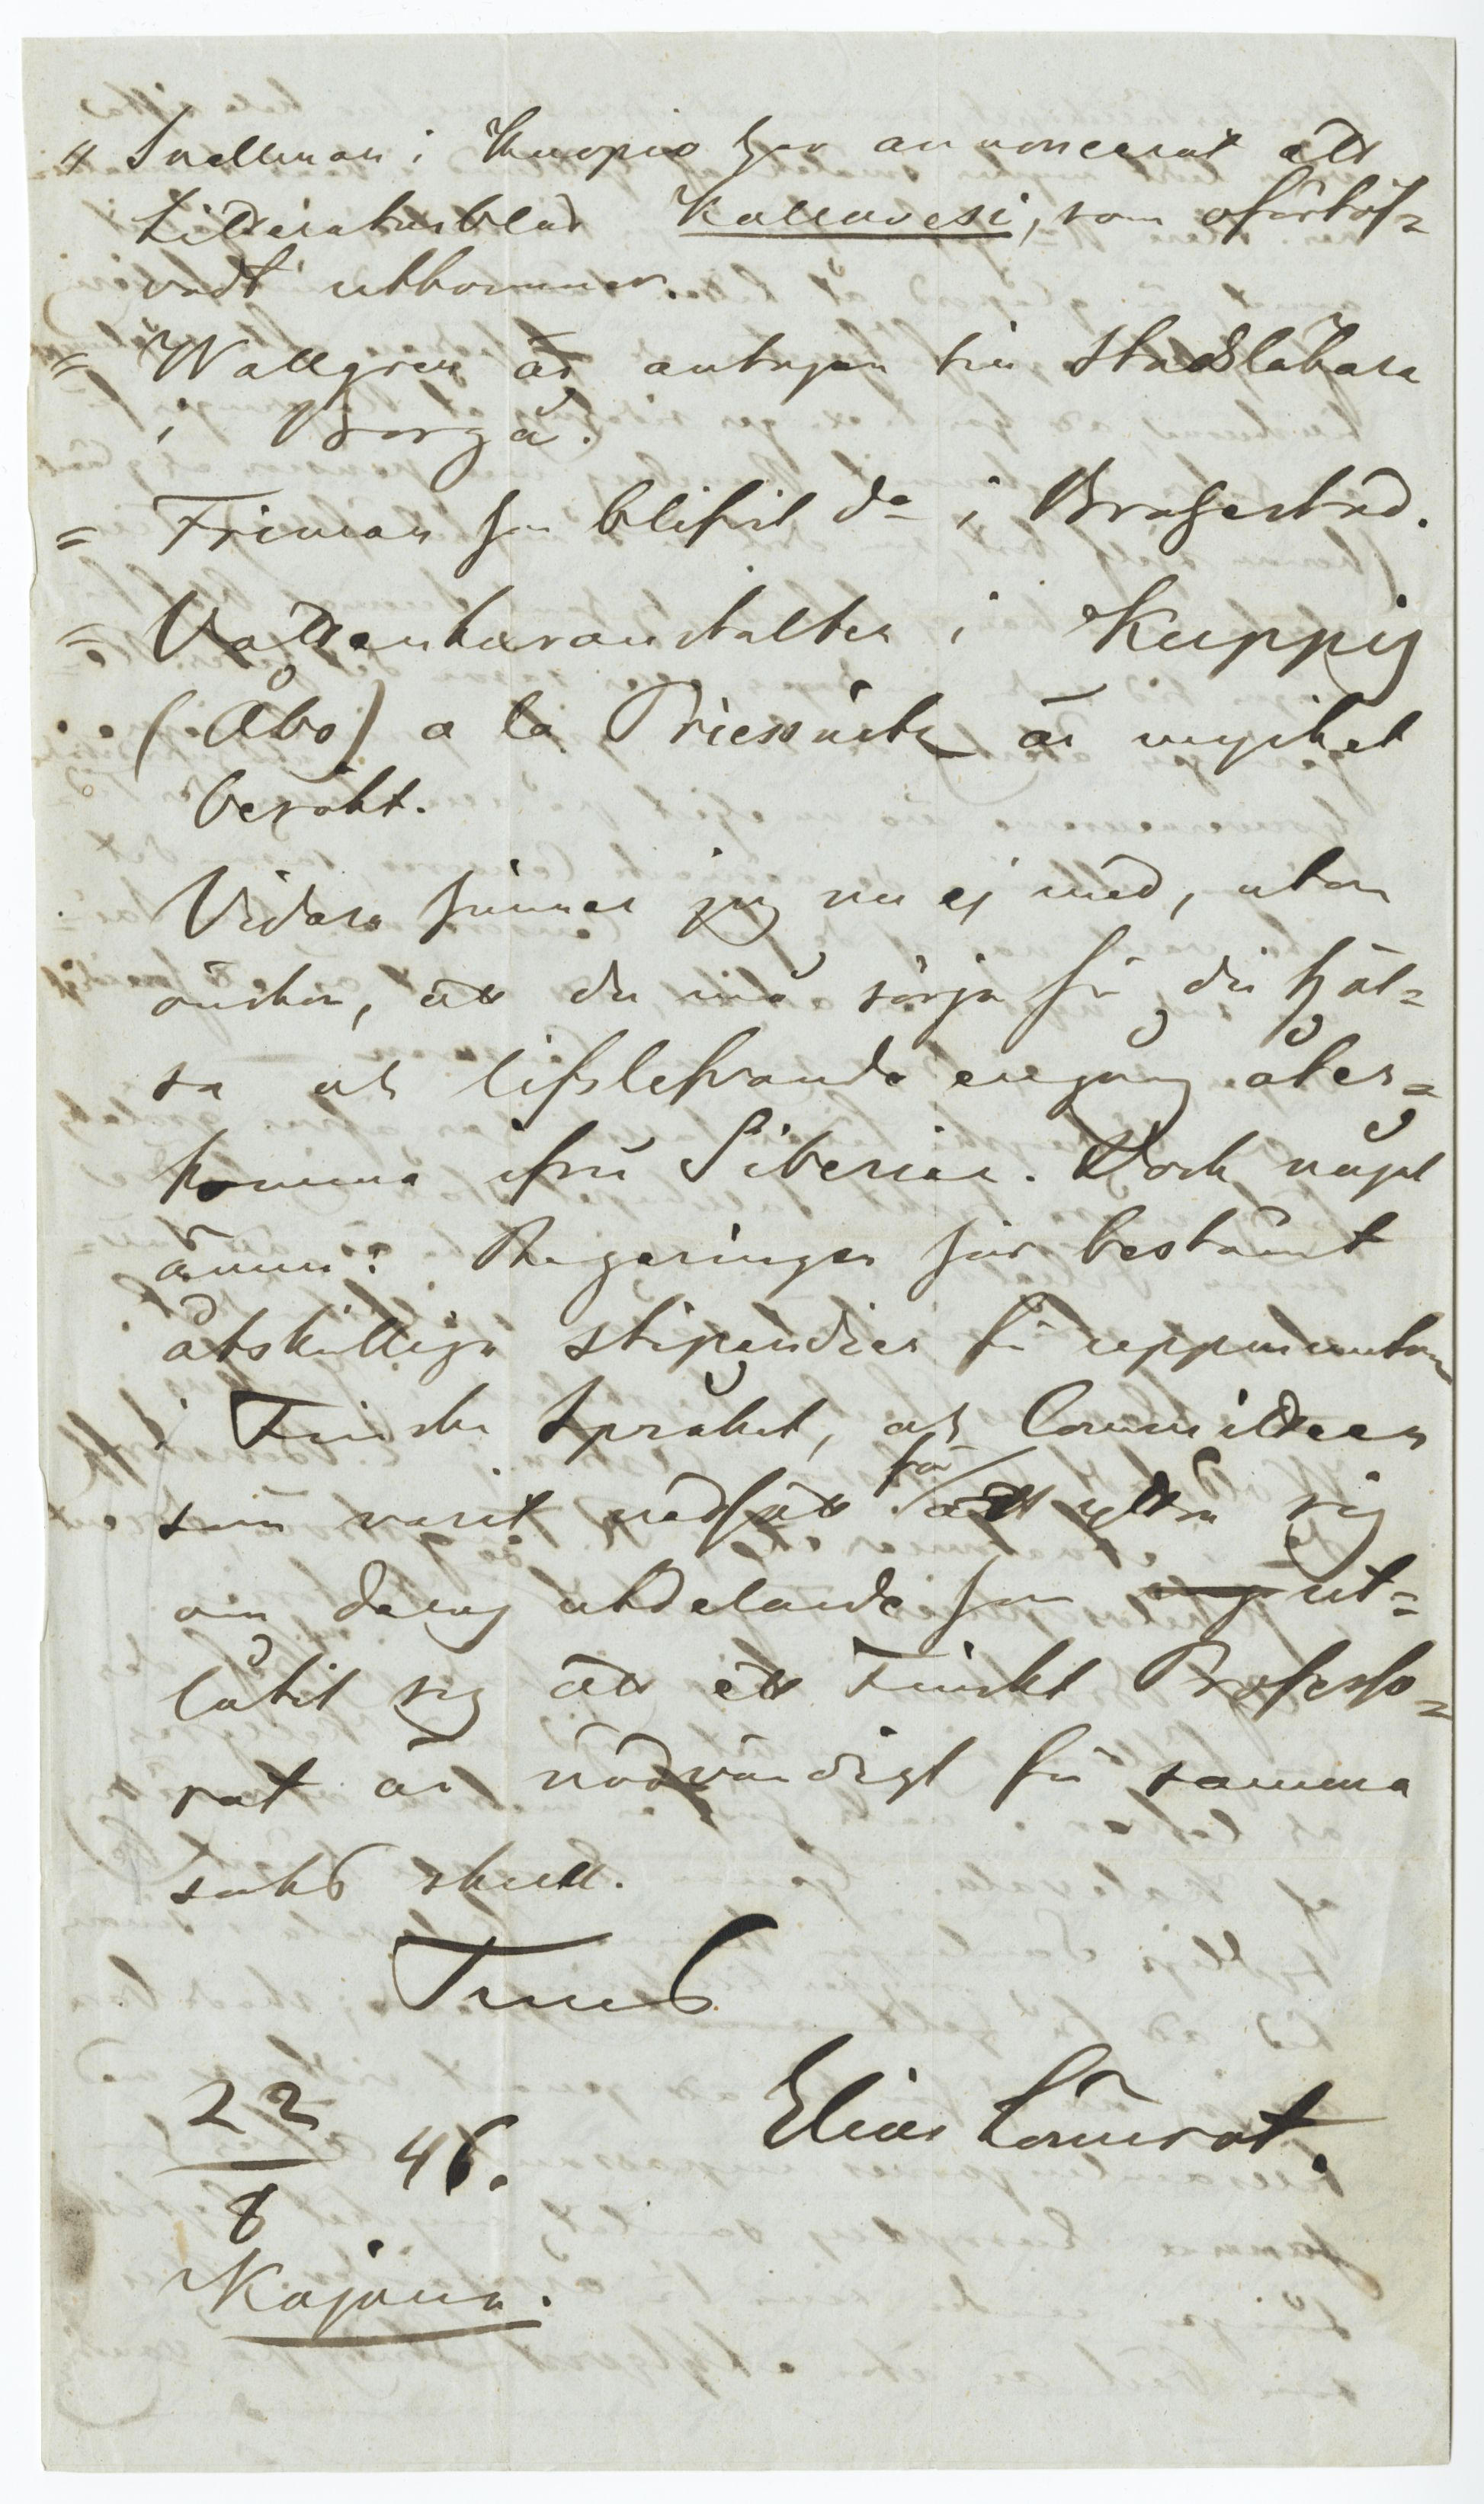 " Snellman i Kuopio har annoncerat ett
Litteraturblad Kallavesi, som oförtöf-
vadt utkommer.
= Wallgren är antagen till Stadsläkare
i Borgå.
= Friman har blifvit do i Brahestad.
= Vattenkuranstalten i Kuppis
(Åbo) a la Priessnitz är mycket
besökt.
Vidare hinner jag nu ej med, utan
önskar, att du må sörja för din hjel-
sa och lifslefvande engång åter-
komma ifrån Siberien. Dock något
ännu: Regeringen har bestämt
åtskilliga stipendier för uppmuntran
i Finska Språket, och Committeen
som varit nedsatt för att yttra sig
om deras utdelande har ut-
låtit sig att ett Finskt Professo-
rat är nödvändigt för samma
saks skull.
Tuus
22
8 46.
Elias Lönnrot.
Kajana.